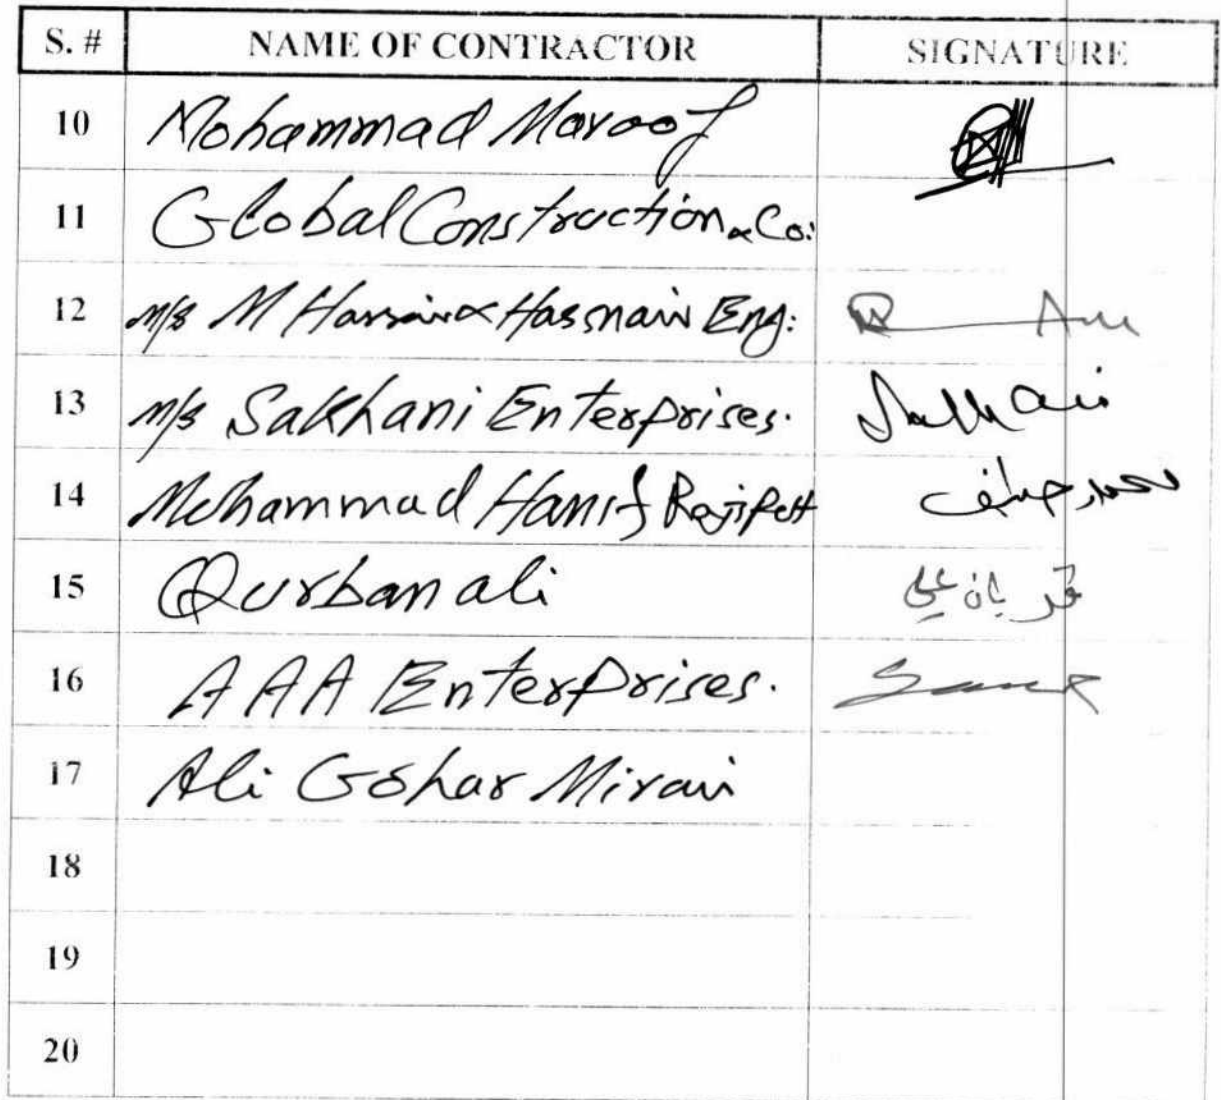 S. # NAME OF CONTRACTOR SIGNATURE
10 Mohammad Maroof
11 Global Construction & Co:
12 M/s M Hassain & Hasnain Eng:
13 M/s Sakhani Enterprises.
14 Mohammad Hanif Rajput محمد حنیف
15 Qurban ali قربان علی
16 AAA Enterprises.
17 Ali Gohar Mirani
18
19
20